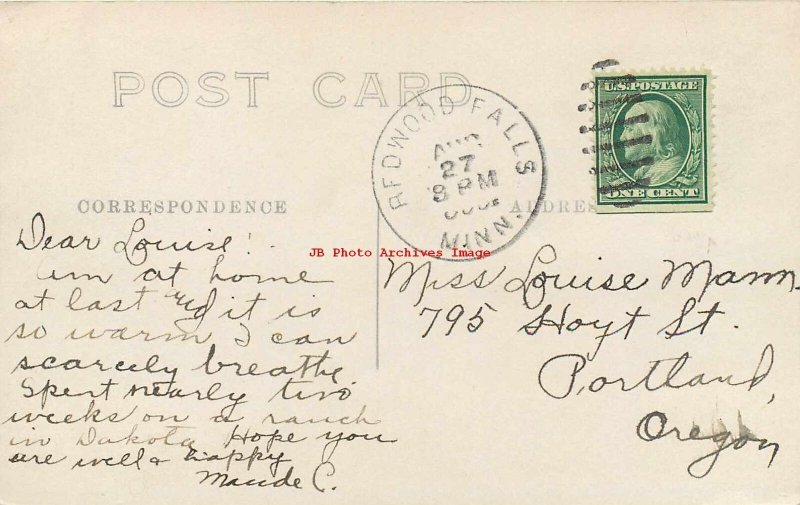 POST CARD
REDWOOD FALLS
AUG
27
8 PM
MINN.
U.S. POSTAGE
ONE CENT
CORRESPONDENCE
ADDRESS
JB Photo Archives Image
Dear Louise!
am at home
at last and it is
so warm I can
scarcely breathe
Spent nearly two
weeks on a ranch
in Dakota Hope you
are well & happy
Maude C.
Miss Louise Mann
795 Hoyt St.
Portland,
Oregon